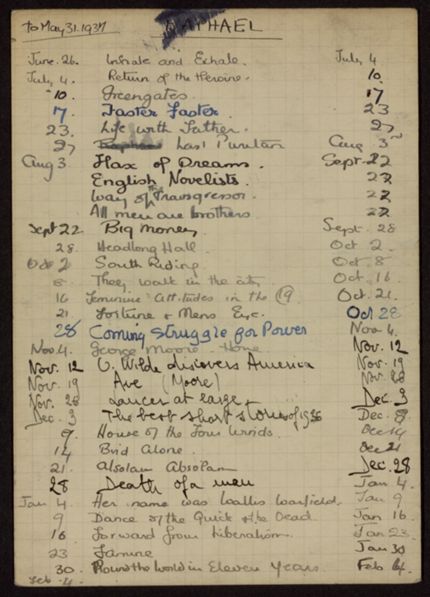 To May, 31. 1937 RAPHAEL
June. 26. Inhale and Exhale. July 4
July, 4. Return of the Heroine. 10.
10 Greengates. 17
17 Faster Faster. 23
23. Life with Father. 27
27 Last Puritan Aug 3
Aug 3 Flax of Dreams. Sept. 22
English Novelists. 22
Way of Transgressor. 22
All men are brothers 22
Sept 22 Big Money Sept. 28
28 Headlong Hall Oct 2
Oct 2 South Riding Oct. 8
8 They walk in the city Oct. 16
16 Feminine Attitudes in the 19 Oct. 21.
21 Fortune & Mens Eye. Oct 28
28 Coming Struggle for Power Nov 4.
Nov 4. George Moore Hone Nov. 12
Nov. 12 O. Wilde discovers America Nov. 19
Nov. 19 Ave (Moore) Nov 28
Nov. 28 Lancer at large Dec 3
Dec. 3 The best short stories of 1936 Dec. 9
9 House of the Four Winds. Dec 14
14 Bird Alone. Dec 21
21. Absalom Absalom Dec. 28
28 Death of a man Jan 4.
Jan 4 Her name was Wallis Warfield. Jan 9
9 Dance of the Quick & the Dead. Jan 16
16 Forward from Liberalism. Jan 23
23 Famine Jan 30
30. Round the World in Eleven Years. Feb 4.
Feb 4.